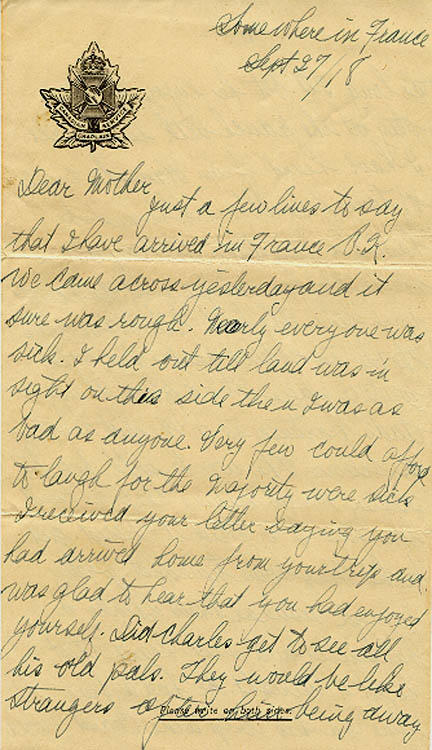 Somewhere in France
Sept 27/18
CANADIAN CHAPLAIN SERVICE
Dear Mother
Just a few lines to say
that I have arrived in France O.K.
We came across yesterday and it
sure was rough. Nearly everyone was
sick. I held out till land was in
sight on this side then I was as
bad as anyone. Very few could afford
to laugh for the majority were sick
I received your letter saying you
had arrived home from your trip and
was glad to hear that you had enjoyed
yourself. Did Charles get to see all
his old pals. They would be like
strangers after being away
Please write on both sides.